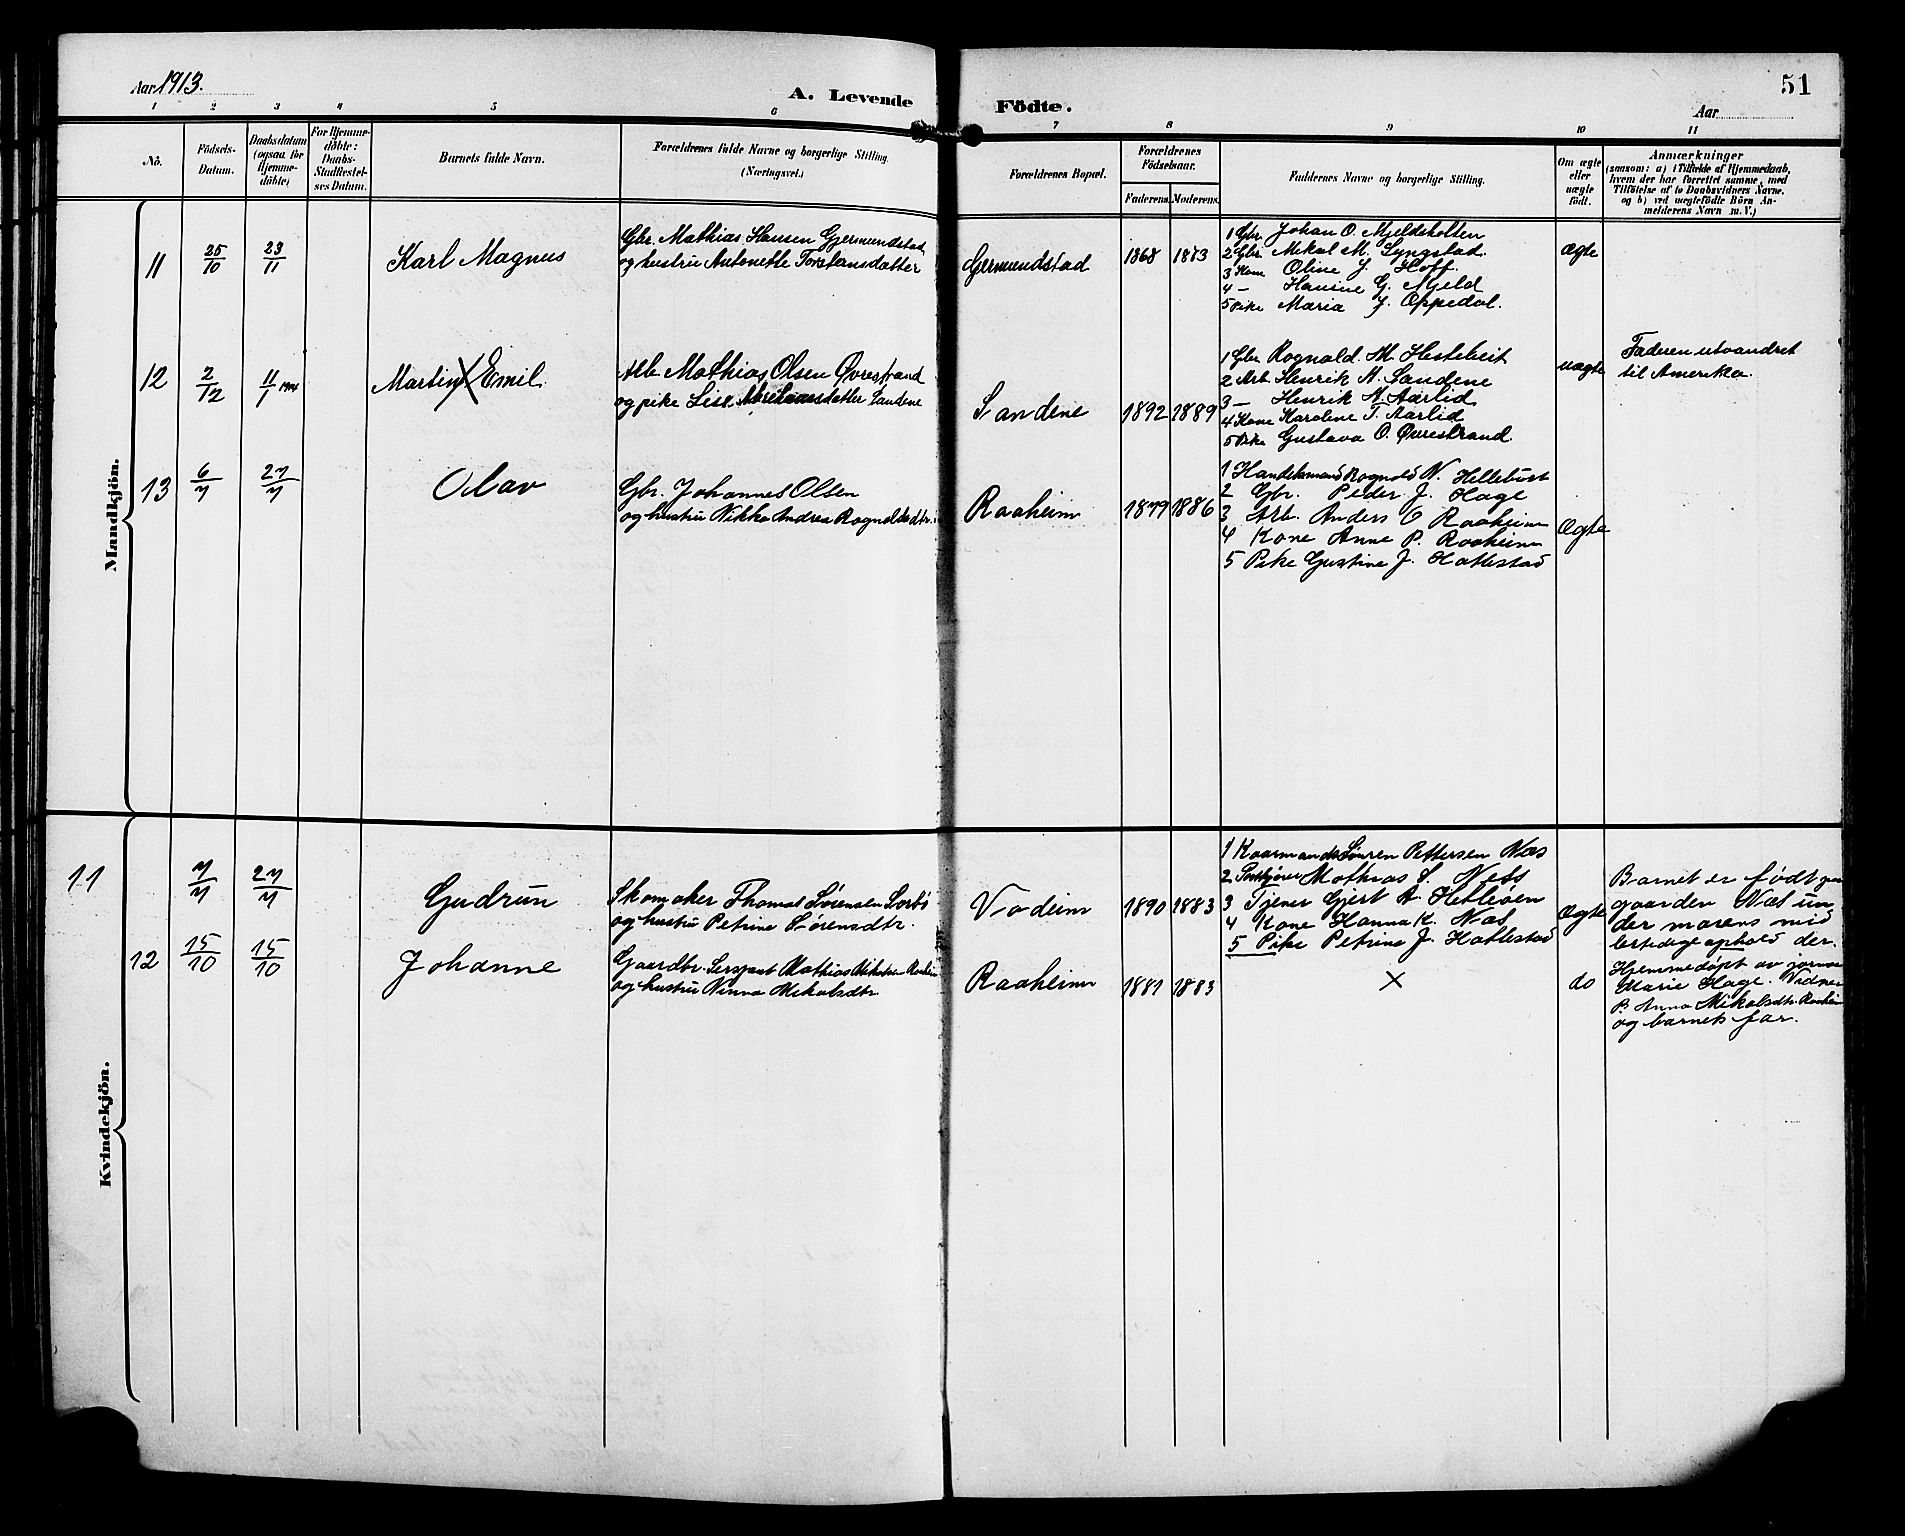 51
Aar 1913.
A. Levende
Födte.
Aar
1 2 3 4 5 6 7 8 9 10 11
No.
Födsels-
Datum.
Daabsdatum
(ogsaa for
Hjemme-
döbte)
For Hjemme-
döbte:
Daabs-
Stadfæstel-
ses Datum.
Barnets fulde Navn.
Forældrenes fulde Navne og borgerlige Stilling.
(Næringsvei.)
Forældrenes Bopæl.
Forældrenes
Födselsaar.
Faderens. Moderens.
Faddernes Navne og borgerlige Stilling.
Om ægte
eller
uægte
födt.
Anmærkninger
(saasom: a) i Tilfælde af Hjemmedaab,
hvem der har forrettet samme, med
Tilföielse af to Daabsvidners Navne,
og b) ved uægtefödte Börn An-
melderens Navn m. V.)
Mandkjön.
11
25/10
23/11
Karl Magnus
Gbr. Mathias Hansen Gjermundstad
og hustru Antonette Torsteinsdatter
Germundstad
1868 1873
1 Gbr. Johan O. Mjeldeholten
2 Gbr. Mikal M. Lyngstad
3 Kone Oline J. Hoff.
4 — Hansine G. Mjeld
5 Pike Maria J. Oppedal.
Ægte
12
2/12
11/1 1914
Martin X Emil
Arb Mathias Olsen Øvrestrand
og pike Lise Abrahamsdatter Sandene
Sandene
1892 1889
1 Gbr Rognald. M. Hestebeit
2 Arb Henrik A. Sandene
3 — Henrik N. Aarlid
4 Kone Karolene T. Aarlid
5 Pike Gustava O. Øvrestrand
uægte
Faderen utvandret
til Amerika.
13
6/7
27/7
Olav
Gbr. Johannes Olsen
og hustru Nikka Andrea Rognaldsdtr.
Raaheim
1879 1886
1 Handelsmand Rognald N. Hellebust
2 Gbr. Peder J. Hage
3 Arb. Anders O Raaheim
4 Kone Anne P. Raaheim
5 Pike Gustine J. Hatlestad
Ægte
Kvindekjön.
11
7/7
27/7
Gudrun
Skomaker Thomas Sørensen Sørbø
og hustru Petrine Sørensdtr.
Vadeim
1890 1883
1 Kaarmand Sønren Pettersen Næs
2 Mathias S. Ness
3 Tjener Gjert A Hetleøen
4 Kone Hanna K. Næs
5 Pike Petrine J. Hatlestad
Ægte
Barnet er født paa
gaarden Næs un-
der morens mid
lertidige ophold der.
12
15/10
15/10
Johanne
Gaardbr. Sersjant Mathias Mikalsen Raaheim
og hustru Ninna Mikalsdtr
Raaheim
1881 1883
X
do
Hjemmedøpt av jormor
Marie Hage. Vidner
P. Anna Mikalsdtr. Raaheim
og barnets far.